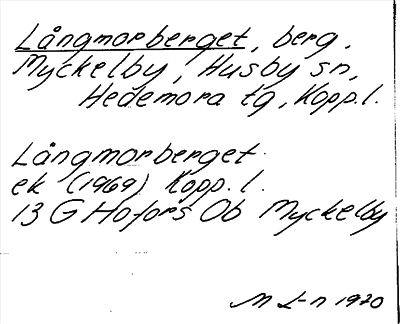 Långmorberget, berg.
Myckelby, Husby sn,
Hedemora tg, Kopp.l.
Långmorberget.
ek (1969) Kopp. l.
13 G Hofors Ob Myckelby
M L-n 1970